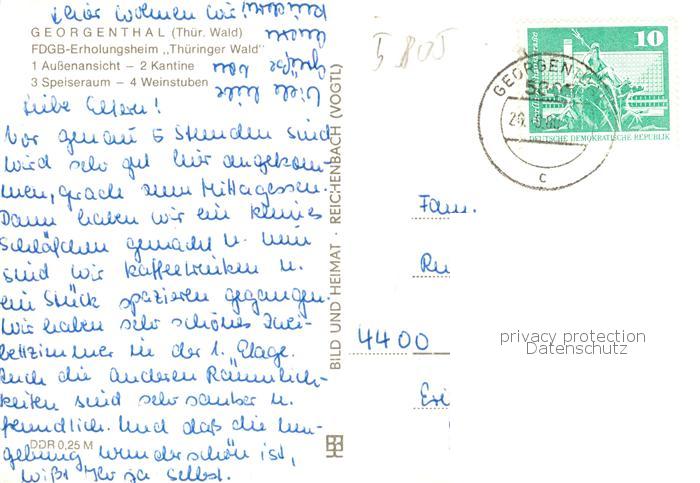 Hier wohnen wir!
GEORGENTHAL (Thür. Wald)
FDGB-Erholungsheim „Thüringer Wald"
1 Außenansicht — 2 Kantine
3 Speiseraum — 4 Weinstuben
Viele liebe
Grüße von
Liebe Eltern!
Vor genau 5 Stunden sind
wird sehr gut hier angekom-
men, grade zum Mittagessen.
Dann haben wir ein kleines
Schläfchen gemacht u. nun
sind wir Kaffeetrinken u.
ein Stück spazieren gegangen.
Wir haben sehr schönes Zwei-
bettzimmer in der 1. Etage.
Auch die anderen Räumlich-
keiten sind sehr sauber u.
freundlich. Und daß die Um-
gebung wunderschön ist,
wißt Ihr ja selbst.
DDR 0,25 M
BILD UND HEIMAT · REICHENBACH (VOGTL)
5 805
GEORGENTHAL
C
10
DEUTSCHE DEMOKRATISCHE REPUBLIK
Fam.
4400
privacy protection
Datenschutz